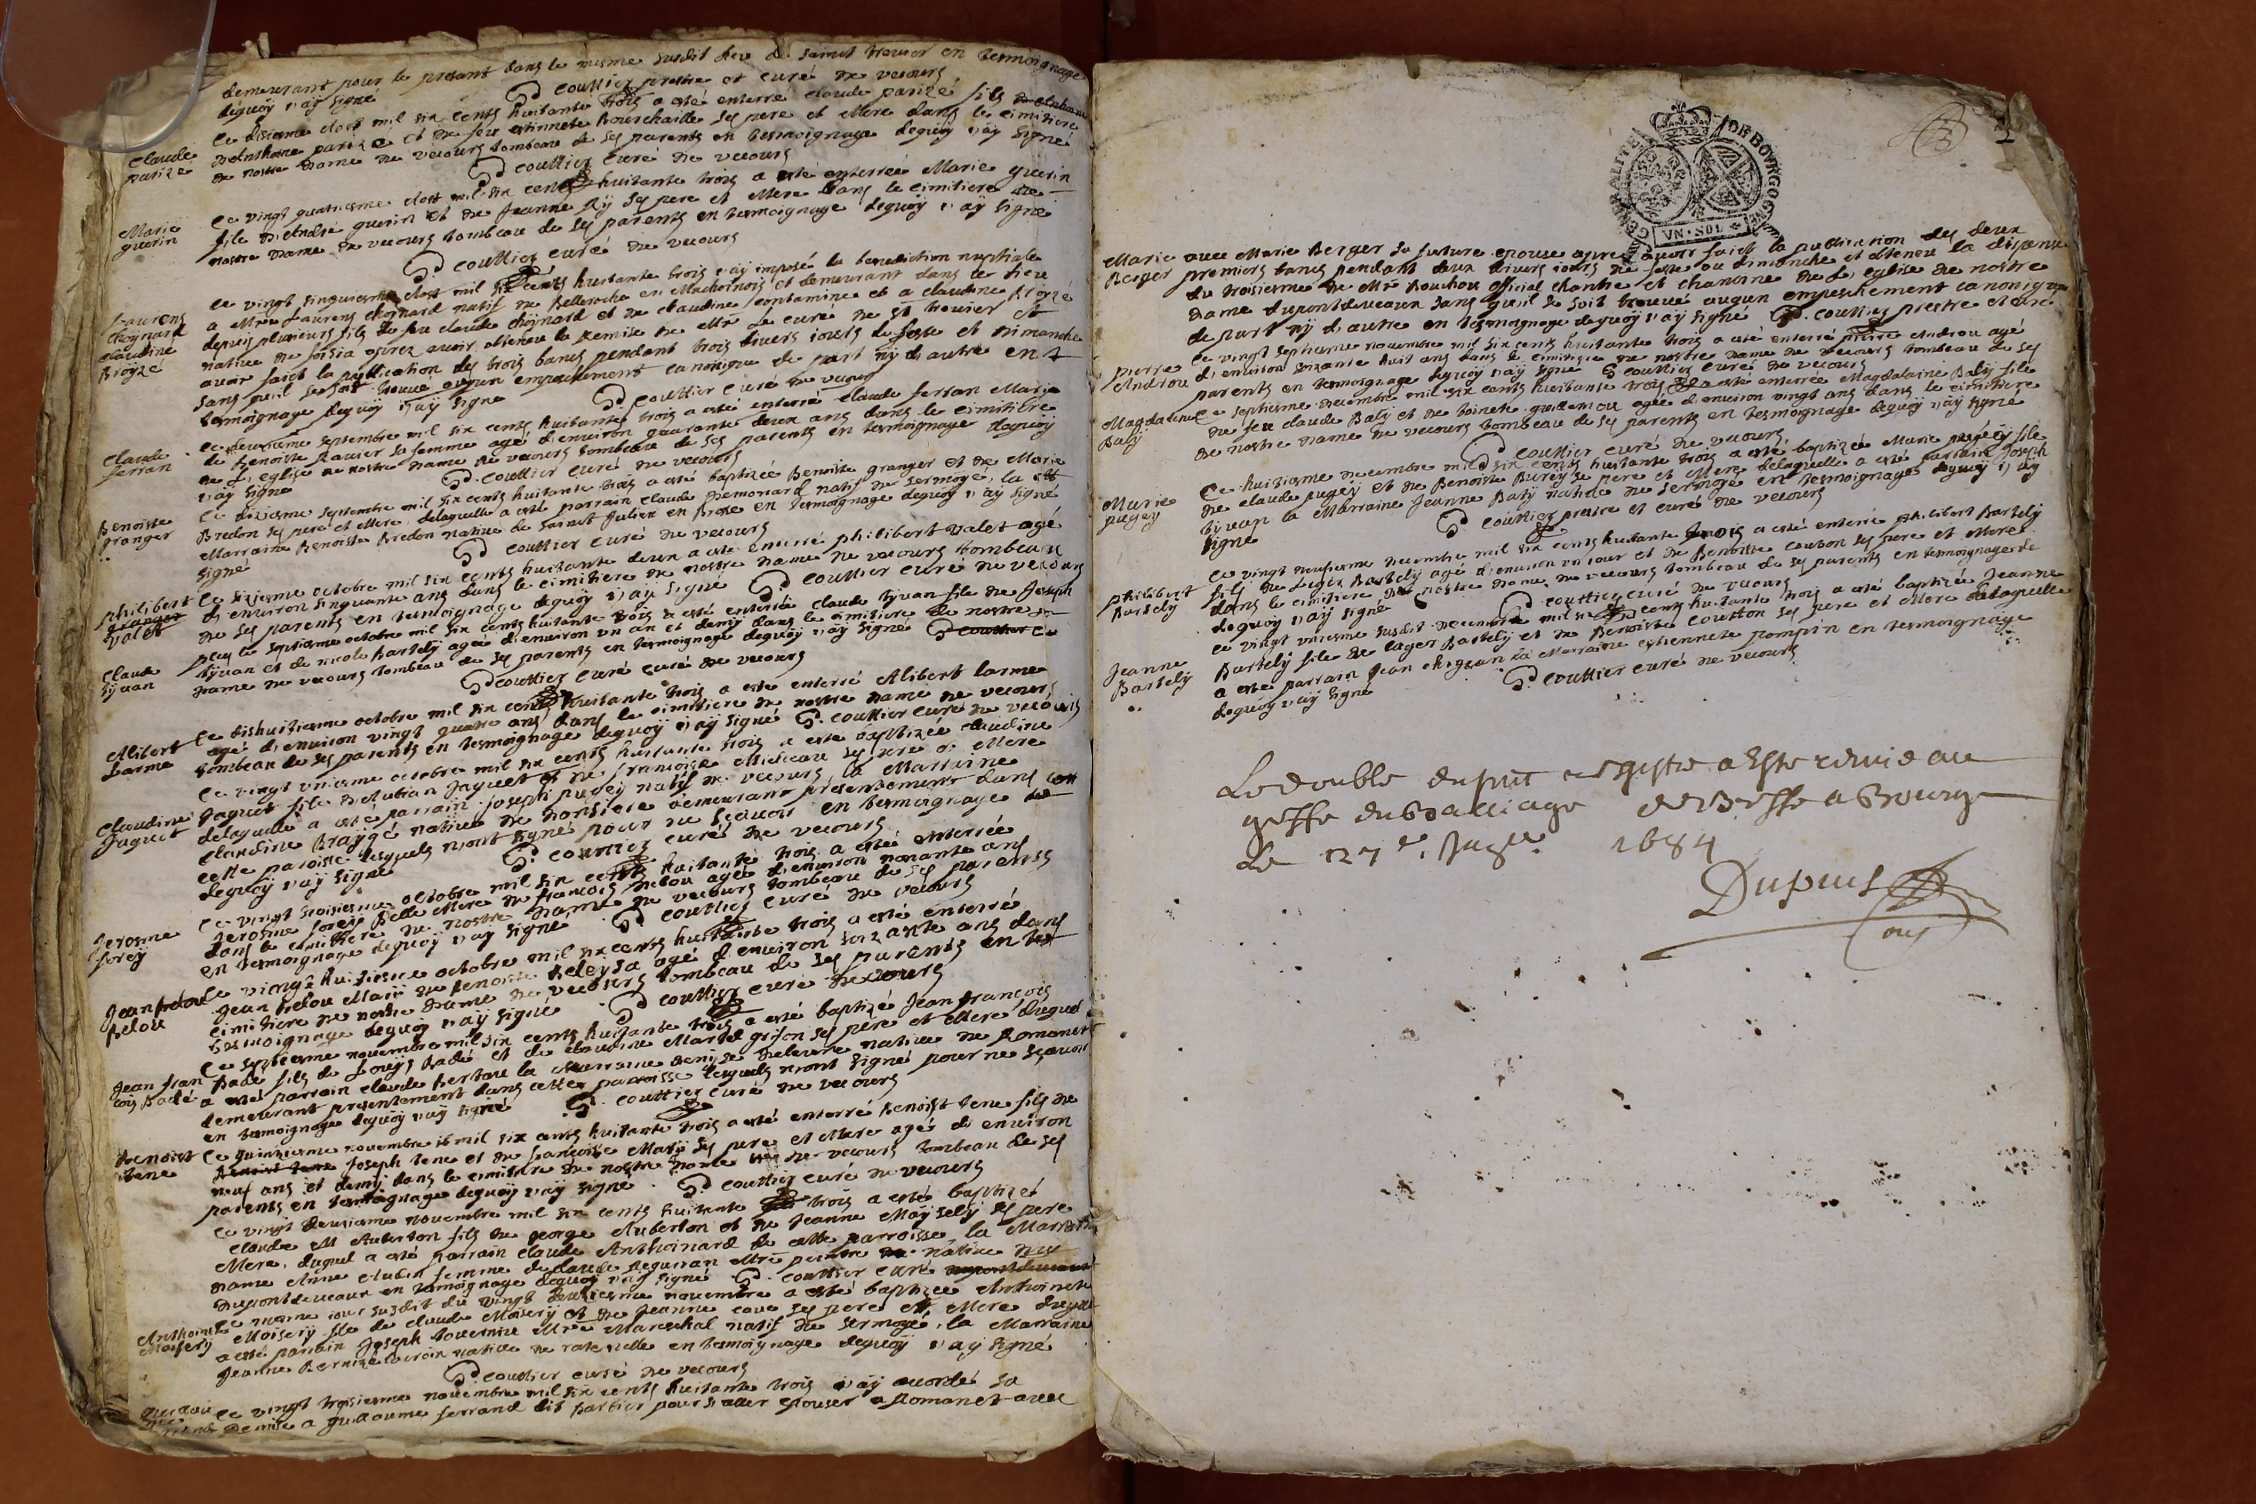 demeurant pour le present dans le mesme susdit lieu de saint trouier en tesmoignage
dequoÿ i'aÿ signé P. couttier prestre et curé de vecours
Claude parize
ce disieme dost mil six cents huitante trois a esté enterré claude parizé fils
d'Anthoine parizé et de feu estiennete Bourchaille ses pere et Mere dans le cimitiere
de nostre dame de vecours tombeau de ses parents en tesmoignage dequoÿ i'aÿ signé
P. couttier curé de vecours
Marie guerin
ce vingt quatriesme dost mil six cents huitante trois a esté enterrée Marie guerin
file d'Andre guerin et de Jeanne ses pere et Mere dans le cimitiere de
nostre dame de vecours tombeau de ses parents en tesmoignage dequoÿ i'aÿ signé
P. couttier curé de vecours
Laurens choÿnard claudine Broÿzé
ce vingt sinquiesme dost mil six cents huitante trois i'aÿ imposé la benediction nuptiale
a Mtre Laurens choÿnard natif de Belleroche en Machonnois et demeurant dans ce lieu
depuis plusieurs fils de feu claude choÿnard et de claudine contamine et a claudine Broÿzé
native de apres avoir obtenu la remise de Mtre Le curé de st trouier et
avoir faict la publication des trois bancs pendant trois divers iours de feste et dimanche
sans qu'il se soit trouué augun empechement canonique de part nÿ d'autre en
tesmoignage dequoÿ i'aÿ signé P. couttier curé de vecours
Claude ferran
ce septembre mil six cents huitante trois a esté enterré claude ferran Marie
de Benoiste Ravier sa femme agé d'environ quarante deux ans dans le cimitiere
de l'eglise de nostre dame de vecours tombeau de ses parents en tesmoignage dequoÿ
i'aÿ signé P. couttier curé de vecours
Benoiste granger
ce septembre mil six cents huitante trois a esté baptizée Benoiste granger et de Marie
Bredon ses pere et Mere, delaquelle a esté parrain claude Demonard natif de sermoyé, la
Marraine Benoiste Bredon native de saint Julien en Bresse en tesmoignage dequoÿ i'aÿ signé
signé P. couttier curé de vecours
philibert valet
ce sixieme octobre mil six cents huitante deux a esté enterré philibert valet agé
d'environ sinquante ans dans le cimitiere de nostre dame de vecours tombeau
de ses parents en tesmoignage dequoÿ i'aÿ signé P. couttier curé de vecours
Claude tÿvan
plus le septiesme octobre mil six cents huitante trois a esté enterrée claude tÿvan file de Joseph
tÿvan et de nicole Bartelÿ agée d'environ un an et demÿ dans le cimitiere de nostre
dame de vecours tombeau de ses parents en tesmoignage dequoÿ i'aÿ signé
P. couttier curé de vecours
Alibert Larme
ce dishuitieme octobre mil six cents huitante trois a esté enterré Alibert larme
agé d'environ vingt quatre ans dans le cimitiere de nostre dame de vecours
tombeau de ses parents en tesmoignage dequoÿ i'aÿ signé P. couttier curé de vecours
Claudine Jaquet
ce vingt uniesme octobre mil six cents huitante trois a esté baptizée claudine
Jaquet file d'Aubian Jaquet et de francoise Micheau ses pere et Mere
delaquelle a esté parrain Joseph pugeÿ natif de vecours, la Marraine
Claudine Braÿzé native de demeurant presentement dans
cette paroisse lesquels n'ont signé pour ne sçavoir en tesmoignage de
dequoÿ i'aÿ signé P. couttier curé de vecours
Jerosme foreÿ
ce vingt troisiesme octobre mil six cents huitante trois a esté enterrée
Jerosme foreÿ Belle Mere de francois Delou agée d'environ nonante ans
dans le cimitiere de nostre dame de vecours tombeau de ses parents
en tesmoignage dequoÿ i'aÿ signé P. couttier curé de vecours
Jean Belou
ce vingt huitiesme octobre mil six cents huitante trois a esté enterré
Jean Belou Marÿ de Benoiste agé d'environ soixante ans dans
cimitiere de nostre Dame de vecours tombeau de ses parents en tes
tesmoignage dequoÿ i'aÿ signé P. couttier curé de vecours
Jean francois Badé
ce septiesme novembre mil six cents huitante trois a esté baptizé Jean francois
Badé fils de Louÿs Badé et de claudine Martel grison ses pere et Mere duquel
a esté parrain claude Bertou la Marraine Denise native de Romanet
demeurant presentement dans cette paroisse lesquels n'ont signé pour ne sçavoir
en tesmoignage dequoÿ i'aÿ signé P. couttier curé de vecours
Benoist tene
ce quinziesme novembre mil six cents huitante trois a esté enterré Benoist tene fils de
Joseph tene et de francoise Marÿ ses pere et Mere agé d'environ
neuf ans et demÿ dans le cimitiere de nostre dame de vecours tombeau de ses
parents en tesmoignage dequoÿ i'aÿ signé P. couttier curé de vecours
ce vingt deuxiesme novembre mil six cents huitante trois a esté baptizé
claude M Auberton fils de george Auberton et de Jeanne ses pere
Mere, duquel a esté parrain claude Anthoinard de cette parroisse, la Marraine
dame Anne Aubin femme de claude Mtre peintre native
Dupontdevaux en tesmoignage dequoÿ i'aÿ signé P. couttier curé
Anthoinete Moiserÿ
ce mesme iour susdit du vingt deuxiesme novembre a esté baptizée Anthoinete
Moiserÿ file de claude Moiserÿ et de Jeanne ses pere et Mere
a esté parrain Joseph Mtre Mareschal natif de sermoyé, la Marraine
Jeanne native de ratenelle en tesmoignage dequoÿ i'aÿ signé
P. couttier curé de vecours
ce vingt troisiesme novembre mil six cents huitante trois i'aÿ accordé sa
remise a guillaume ferrand dit Barbier pour s'aller espouser a Romanet avec
GENERALITE DE BOVRGOGNE
VN·SOL
Marie Berger
avec Marie Berger sa future epouse apres avoir faict la publication des deux
premiers bancs pendant deux divers iours de feste ou dimanche et obtenu la dispense
du troisiesme de Mtre Bouchou official chantre et chanoine de l'eglise de nostre
dame dupontdevaux sans qu'il se soit trouué augun empeschement canonique
de part nÿ d'autre en tesmoignage dequoÿ i'aÿ signé P. couttier prestre et curé
pierre Andiou
ce vingt septiesme novembre mil six cents huitante trois a esté enterré pierre Andiou agé
d'environ soixante huit ans dans le cimitiere de nostre dame de vecours tombeau de ses
parents en tesmoignage dequoÿ i'aÿ signé P. couttier curé de vecours
Magdalaine Balÿ
ce septiesme decembre mil six cents huitante trois a esté enterrée Magdalaine Balÿ file
de feu claude Balÿ et de toinete guillemou agée d'environ vingt ans dans le cimitiere
de nostre dame de vecours tombeau de ses parents en tesmoignage dequoÿ i'aÿ signé
P. couttier curé de vecours
Marie pugeÿ
ce huitiesme decembre mil six cents huitante trois a esté baptizée Marie pugeÿ file
de claude pugeÿ et de Benoiste Bureÿ se pere et Mere delaquelle a esté parrain Joseph
tÿvan la Marraine Jeanne Balÿ native de sermoyé en tesmoignage dequoÿ i'aÿ
signé P. couttier prestre et curé de vecours
philibert Bartelÿ
ce vingt neufiesme decembre mil six cents huitante trois a esté enterré philibert Bartelÿ
fils de Leger Bartelÿ agé d'environ un iour et de Benoiste couton ses pere et Mere
dans le cimitiere de nostre dame de vecours tombeau de ses parents en tesmoignage de
dequoÿ i'aÿ signé P. couttier curé de vecours
Jeanne Bartelÿ
ce vingt uniesme susdit decembre mil six cents huitante trois a esté baptizée Jeanne
Bartelÿ file de Leger Bartelÿ et de Benoiste couton ses pere et Mere delaquelle
a esté parrain Jean la Marraine estiennete pompin en tesmoignage
dequoy i'aÿ signé P. couttier curé de vecours
Le double du pnt registre a este remis au
greffe du Balliage de Bresse a Bourg
Le 27e. 1684
Dupuis